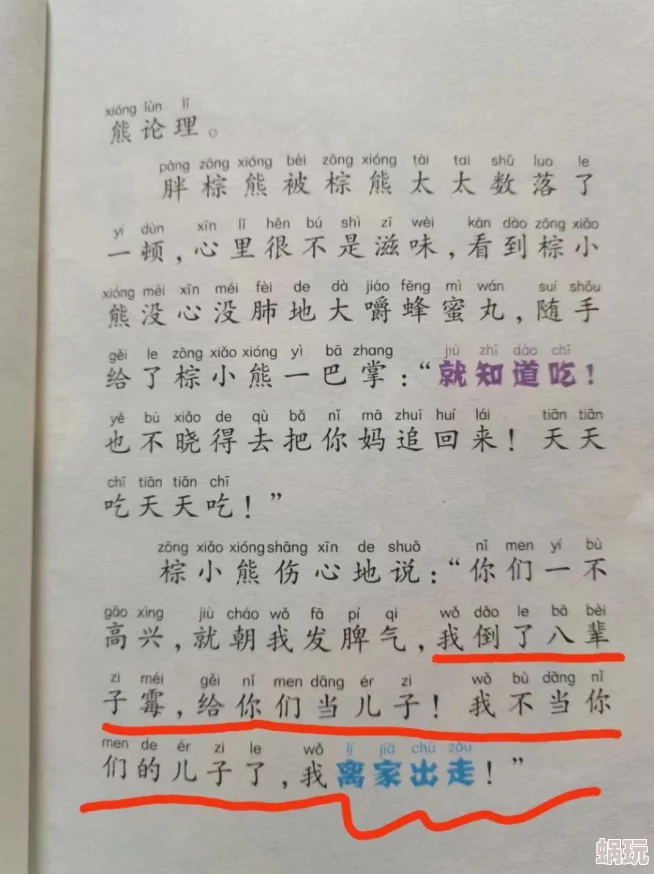 xióng lùn lǐ
熊论理。
pàng zōng xióng bèi zōng xióng tài tai shǔ luo le
胖棕熊被棕熊太太数落了
yí dùn xīn lǐ hěn bú shì zī wèi kàn dào zōng xiǎo
一顿，心里很不是滋味，看到棕小
xióng méi xīn méi fèi de dà jiáo fēng mì wán suí shǒu
熊没心没肺地大嚼蜂蜜丸，随手
gěi le zōng xiǎo xióng yì bā zhang jiù zhī dào chī
给了棕小熊一巴掌：“就知道吃！
yě bù xiǎo de qù bǎ nǐ mā zhuī huí lái tiān tiān
也不晓得去把你妈追回来！天天
chī tiān tiān chī
吃天天吃！”
zōng xiǎo xióng shāng xīn de shuō nǐ men yí bù
棕小熊伤心地说：“你们一不
gāo xìng jiù cháo wǒ fā pí qi wǒ dǎo le bā bèi
高兴，就朝我发脾气，我倒了八辈
zi méi gěi nǐ men dāng ér zi wǒ bù dāng nǐ
子霉，给你们当儿子！我不当你
men de ér zi le wǒ lí jiā chū zǒu
们的儿子了，我离家出走！”
蜗玩